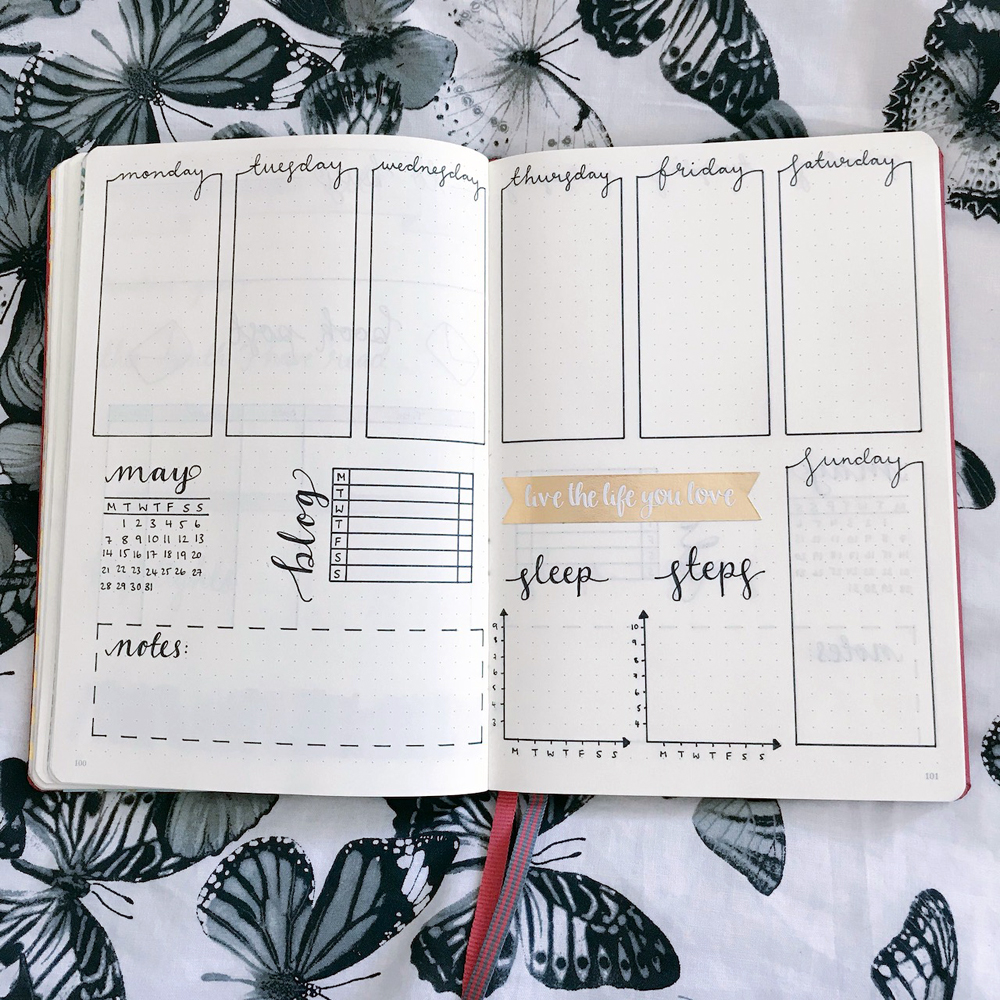 monday
tuesday
wednesday
thursday
friday
saturday
may
M T W T F S S
1 2 3 4 5 6
7 8 9 10 11 12 13
14 15 16 17 18 19 20
21 22 23 24 25 26 27
28 29 30 31
blog
M
T
W
T
F
S
S
notes:
100
live the life you love
sleep
9
8
7
6
5
4
3
M T W T F S S
steps
10
9
8
7
6
5
4
M T W T F S S
sunday
101